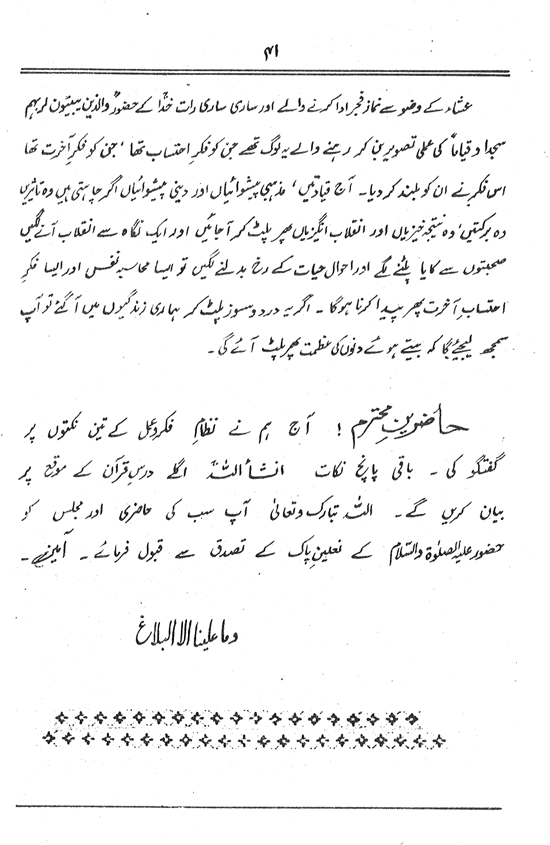 ۴۱
عشاء کے وضو سے نماز فجر ادا کرنے والے اور ساری ساری رات خدا کے حضور والذین یبیتون لربھم
سجدا و قیاما کی عملی تصویریں بن کر رہنے والے یہ لوگ تھے جن کو فکرِ احتساب تھا ‘ جن کو فکرِ آخرت تھا
اس فکر نے ان کو بلند کر دیا۔ آج قیادتیں‘ مذہبی پیشوائیاں اور دینی پیشوائیاں اگر چاہتی ہیں وہ تاثیریں
وہ برکتیں‘ وہ نتیجہ خیزیاں اور انقلاب انگیزیاں پھر پلٹ کر آ جائیں اور ایک نگاہ سے انقلاب آنے لگیں
صحبتوں سے کایا پلٹنے لگے اور احوال حیات کے رخ بدلنے لگیں تو ایسا محاسبہ نفس اور ایسا فکرِ
احتسابِ آخرت پھر پیدا کرنا ہوگا ۔ اگر یہ درد و سوز پلٹ کر ہماری زندگیوں میں آ گئے تو آپ
سمجھ لیجئے گا کہ بیتے ہوئے دنوں کی عظمت پھر پلٹ آئے گی ۔
حاضرینِ محترم ! آج ہم نے نظامِ فکر و عمل کے تین نکتوں پر
گفتگو کی ۔ باقی پانچ نکات انشأ اللہ اگلے درسِ قرآن کے موقع پر
بیان کریں گے ۔ اللہ تبارک وتعالیٰ آپ سب کی حاضری اور مجلس کو
حضور علیہ الصلوٰۃ والسلام کے نعلینِ پاک کے تصدق سے قبول فرمائے ۔ آمین ۔
وما علینا الا البلاغ